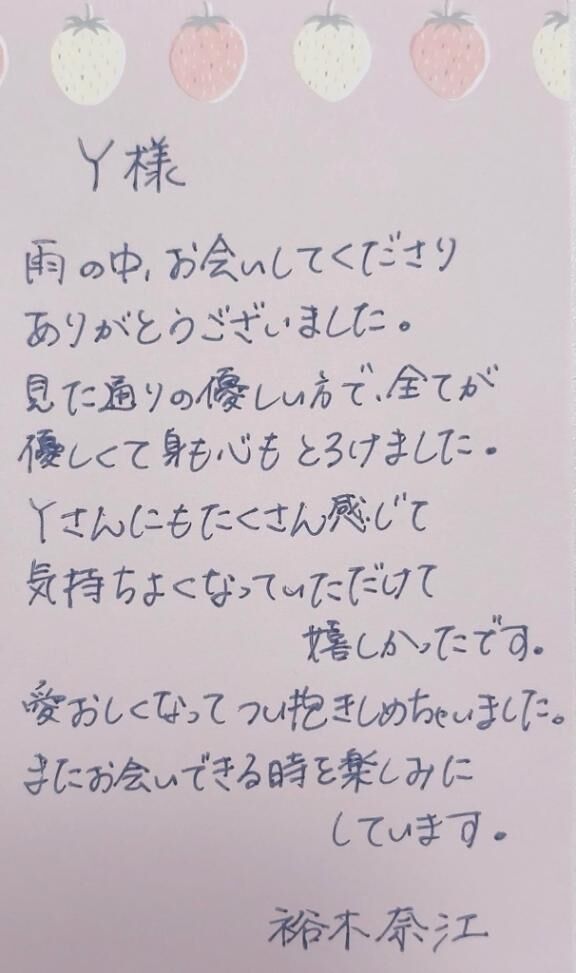 Y様
雨の中、お会いしてくださり
ありがとうございました。
見た通りの優しい方で、全てが
優しくて身も心もとろけました。
Yさんにもたくさん感じて
気持ちよくなっていただけて
嬉しかったです。
愛おしくなってつい抱きしめちゃいました。
またお会いできる時を楽しみに
しています。
裕木奈江